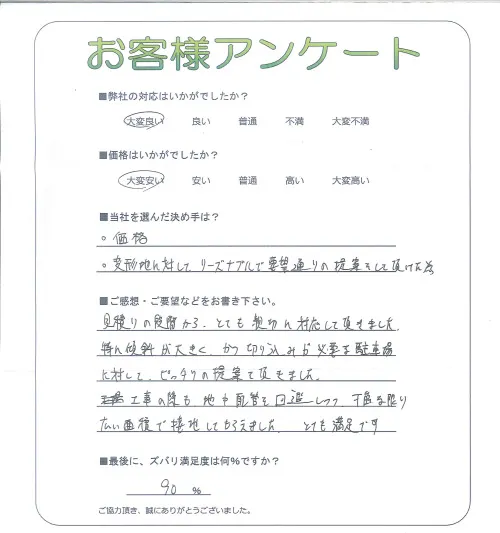 お客様アンケート
■弊社の対応はいかがでしたか？
大変良い 良い 普通 不満 大変不満
■価格はいかがでしたか？
大変安い 安い 普通 高い 大変高い
■当社を選んだ決め手は？
。価格
。変形地に対して、リーズナブルで要望通りの提案をして頂けた為
■ご感想・ご要望などをお書き下さい。
見積りの段階から、とても親切に対応して頂きました。
特に傾斜が大きく、かつ切り込みが必要な駐車場
に対して、ピッタリの提案を頂きました。
工事の際も地中配管を回避しつつ、可能な限り
広い面積で接地してもらえました。とても満足です
■最後に、ズバリ満足度は何％ですか？
90 ％
ご協力頂き、誠にありがとうございました。